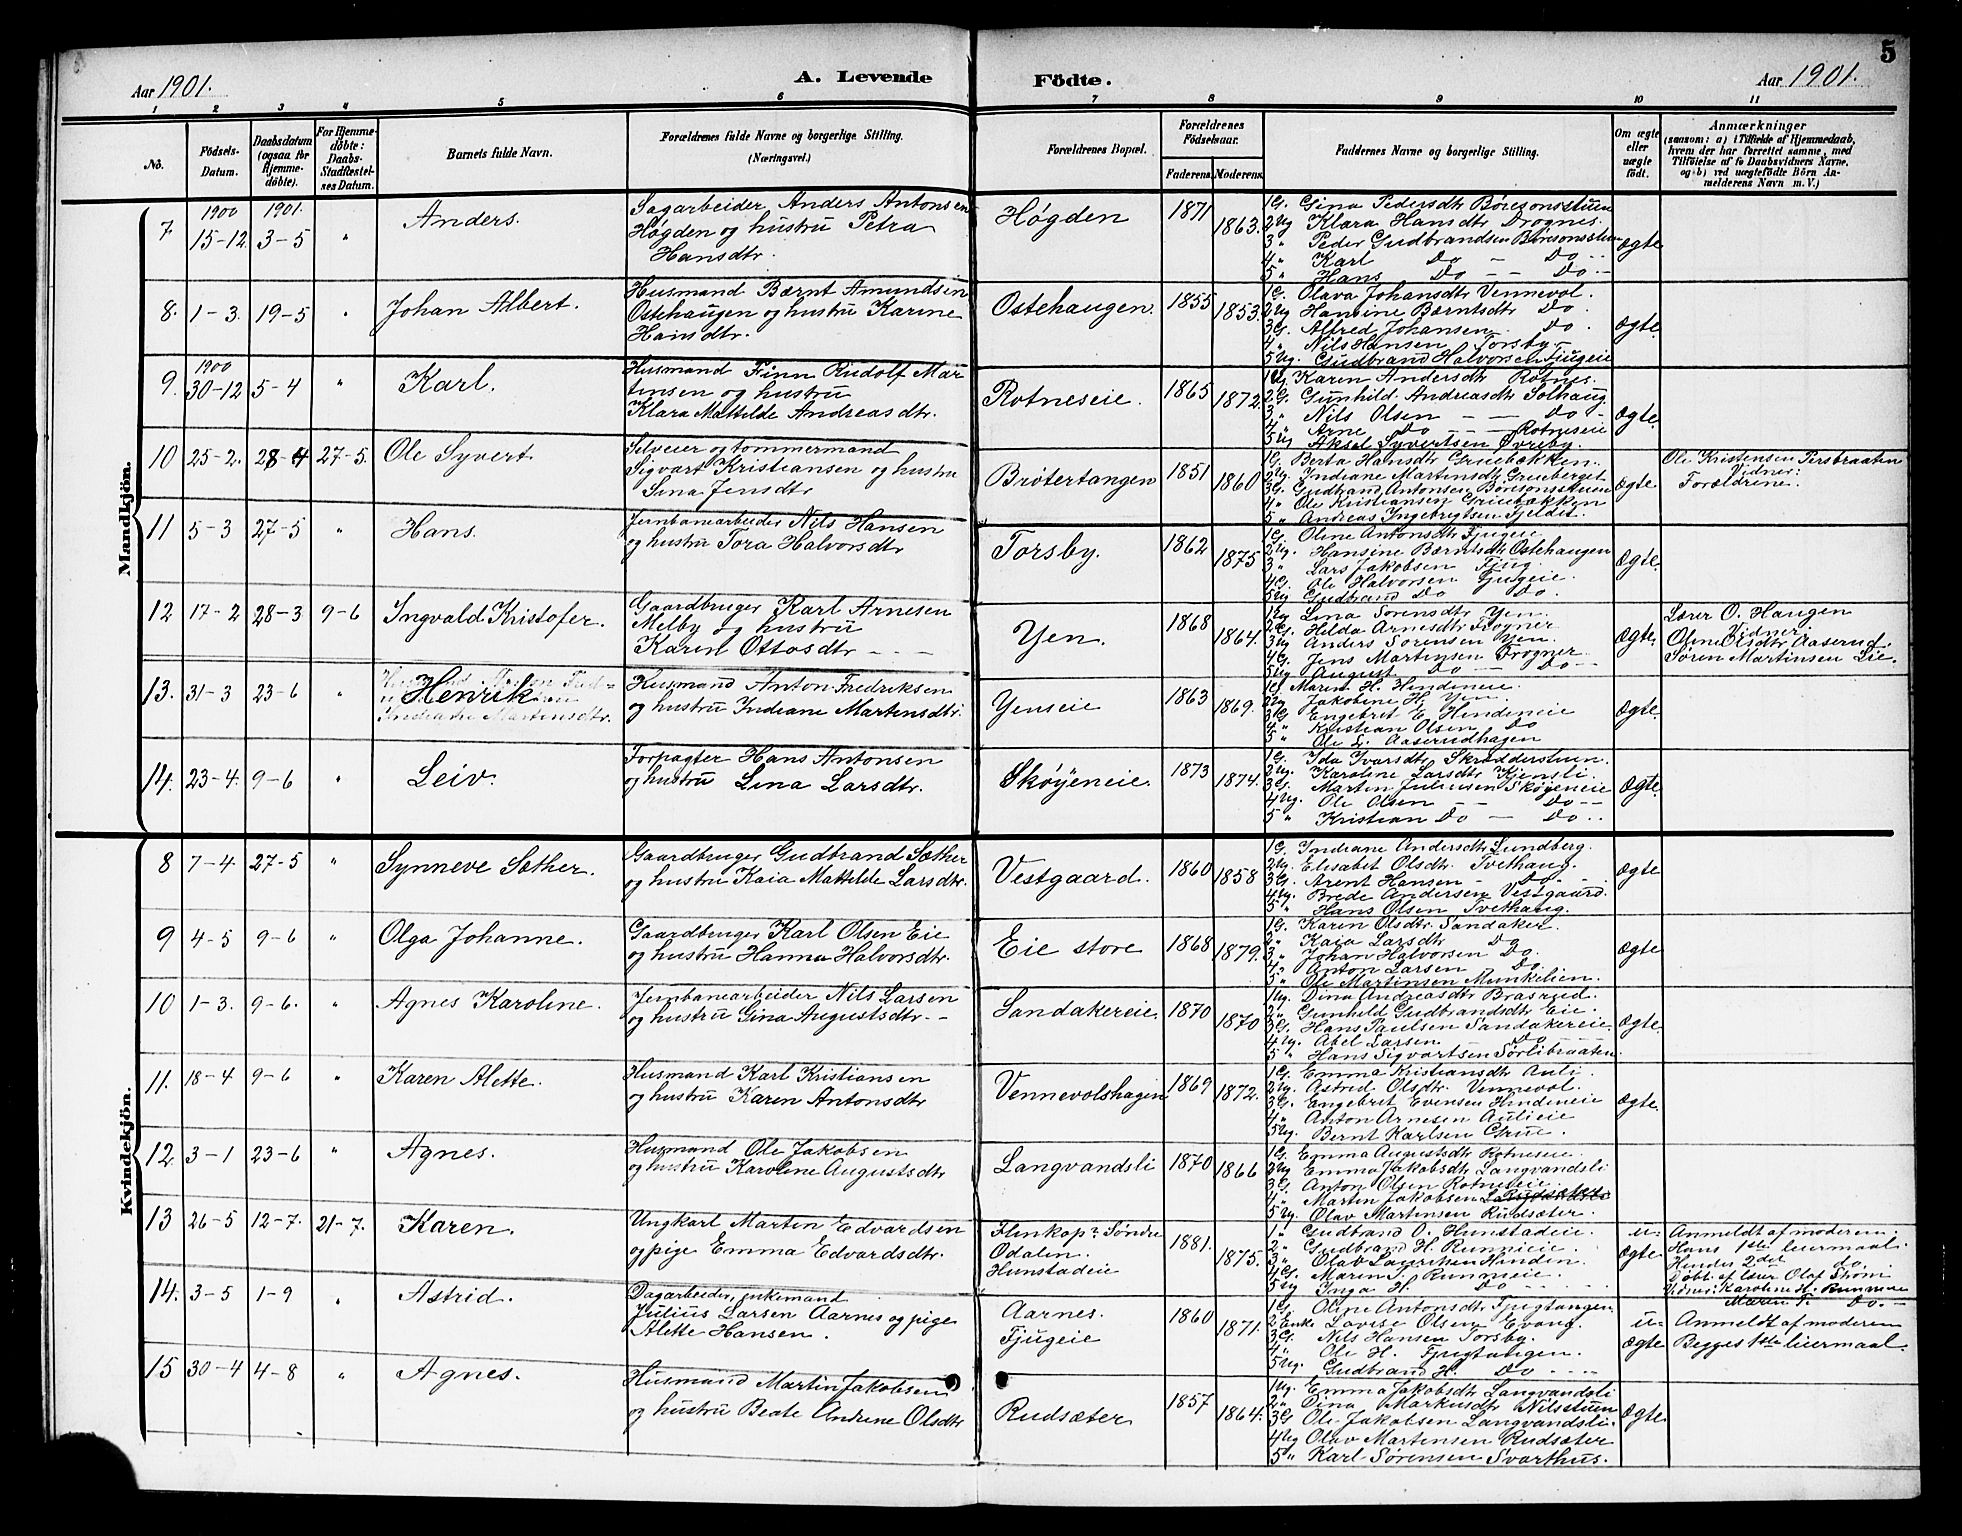 5
Aar 1901.
A. Levende Födte.
Aar 1901.
1 2 3 4 5 6 7 8 9 10 11
No.
Födsels-Datum.
Daabsdatum (ogsaa for Hjemme-döbte).
For Hjemme-döbte: Daabs-Stadfæstel-ses Datum.
Barnets fulde Navn.
Forældrenes fulde Navne og borgerlige Stilling. (Næringsvei.)
Forældrenes Bopæl.
Forældrenes Födselsaar.
Faderens. Moderens.
Faddernes Navne og borgerlige Stilling.
Om ægte eller uægte födt.
Anmærkninger
(saasom: a) i Tilfælde af Hjemmedaab,
hvem der har forrettet samme, med
Tilföielse af to Daabsvidners Navne,
og b) ved uægtefödte Börn An-
melderens Navn m. V.)
Mandkjön.
7. 1900 15-12 1901. 3-5 " Anders.
Sagarbeider Anders Antonsen
Høgden og hustru Petra
Hansdtr.
Høgden 1871 1863.
1 G. Gina Pedersdtr Børesonsstuen
2 Ug Klara Hansdtr Drognes.
3 " Peder Gudbrandsen Børesonsstuen
4 " Karl Do - Do --
5 " Hans Do -- Do --
ægte
8. 1-3. 19-5 " Johan Albert.
Husmand Bærnt Amundsen
Ostehaugen og hustru Karine
Hansdtr.
Ostehaugen. 1855 1853.
1 G. Olava Johansdtr Vennevol.
2 Ug Hansine Bærntsdtr Do.
3 G. Alfred Johansen. Do.
4 " Nils Hansen Torsby -
5 Ug. Gudbrand Halvorsen Fjugeie
ægte
9. 1900 30-12 5-4 " Karl.
Husmand Finn Rudolf Mar
tinsen og hustru
Klara Mathilde Andreasdtr.
Rotneseie. 1865 1872.
1 Ug. Karen Andersdtr Rotnes.
2 G. Gunhild Andreasdtr Solhaug
3 " Nils Olsen - - Do -
4 " Arne Do - - Rotneseie
5 Ug Aksel Syvertsen Øvreby.
ægte.
10 25-2. 28-4 27-5. Ole Syvert.
Selveier og tømmermand
Sigvart Kristiansen og hustru
Sina Jensdtr
Brøtertangen 1851 1860
1 G. Berta Hansdtr Gruebækken.
2 Ug. Indiane Martinsdtr Grueberget
3 G. Gudbrand Antonsen Børesonsstuen
4 " Ole Kristiansen Gruebækken
5 " Andreas Ingebrigtsen Fjeldet.
ægte.
Ole Kristensen Persbraaten
Vidner:
Forældrene.
11 5-3 27-5 " Hans.
Jernbanearbeider Nils Hansen
og hustru Tora Halvorsdtr
Torsby. 1862 1875
1 G. Oline Antonsdtr Fjugeie
2 Ug. Hansine Bærntsdtr Ostehaugen
3 " Lars Jakobsen Fjug.
4 G. Ole Halvorsen Fjugeie.
5 Ug Gudbrand Do Do.
ægte.
12 17-2 28-3 9-6 Ingvald Kristofer.
Gaardbruger Karl Arnesen
Melby og hustru
Karen Ottosdtr - - -
Yen. 1868 1864.
1 Ug Lina Sørensdtr Yen.
2 G. Helda Arnesdtr Frogner
3 Ug Anders Sørensen Yen.
4 G. Jens Martinsen Frogner
5 Ug August Do -- Do --
ægte.
Lærer O. Haugen
Vidner
Oline Olsdtr Aaserud
Søren Martinsen Lie.
13. 31-3 23-6 " Henrik
Husmand Anton Fredriksen
og hustru Indiane Martinsdtr.
Yenseie 1863 1869.
1 G. Maren H. Hindeneie.
2 Ug Jakobine H. Yen.
3 G. Engebret E. Hindeneie
4 " Kristian Olsen Do
5 " Ole L. Aaserudhagen
ægte.
14. 23-4. 9-6 " Leiv.
Forpagter Hans Antonsen
og hustru Lina Larsdtr.
Skøyeneie. 1873 1874.
1 G. Ida Ivarsdtr Skrædderstuen.
2 Ug. Karoline Larsdtr Kjensli
3 G. Martin Juliussen Skøyeneie
4 Ug. Ole Olsen - - Do --
5 " Kristian Do - Do --
ægte.
Kvindekjön.
8 7-4. 27-5 " Synneve Sæther.
Gaardbruger Gudbrand Sæther
og hustru Kaia Mathilde Larsdtr.
Vestgaard. 1860 1858
1 G. Indiane Andersdtr Lundberg.
2 Ug. Elisabet Olsdtr. Tvethaug.
3 G. Arent Hansen - Do - -
4 Ug. Brede Andersen Vestgaard.
5 " Hans Olsen Tvethaug.
ægte
9 4-5 9-6 " Olga Johanne.
Gaardbruger Karl Olsen Eie
og hustru Hanna Halvorsdtr.
Eie store 1868 1879.
1 G. Karen Olsdtr. Sandaker.
2 " Kaia Larsdtr Do
3 " Johan Halvorsen Do.
4 " Anton Larsen Do.
5 " Ole Martinsen Munkelien.
ægte
10 1-3. 9-6. " Agnes Karoline.
Jernbanearbeider Nils Larsen
og hustru Gina Augustsdtr. -
Sandakereie. 1870 1870
1 Ug. Dina Andreasdtr Brasrud.
2 " Gunhild Gudbrandsdtr Eie.
3 G. Hans Paulsen Sandakereie
4 Ug. Abel Larsen. Do
5 " Hans Sigvartsen Sørlibraaten
ægte.
11. 18-4 9-6 " Karen Alette.
Husmand Karl Kristiansen
og hustru Karen Antonsdtr
Vennevolshagen 1869 1872.
1 G. Emma Kristiansdtr Auli.
2 Ug. Astrid Olsdtr. Vennevol.
3 G. Engebret Evensen Hindeneie
4 " Anton Arnesen Aulieie
5 Ug. Bernt Karlsen Grue.
ægte.
12 3-1 23-6 " Agnes.
Husmand Ole Jakobsen
og hustru Karoline Augustsdtr
Langvandsli 1870 1866
1 G. Emma Augustsdtr Rotneseie.
2 Ug Emma Jakobsdtr Langvandsli
3 G Anton Olsen Rotneseie.
4 " Martin Jakobsen Rudsæter
5 Ug. Olav Martinsen Rudsæter.
ægte
13 26-5 12-7. 21-7. Karen.
Ungkarl Martin Edvardsen
og pige Emma Edvardsdtr.
Søndre
Odalen.
Hunstadeie
1881. 1875.
1 " Gudbrand O. Hunstadeie.
2 " Gudbrand H. Runnieie.
3 " Olav Lauritsen Hinden.
4 G. Maren T. Runneie.
5 Ug Inga H. Do
u-
ægte
Anmeldt af moderen.
Hans 1ste leiermaal.
Hendes 2det do.
Døbt af lærer Olaf Strøm
Vidner: Karoline H. Runneie
Maren T. Do. -
14. 3-5 1-9 " Astrid.
Dagarbeider, enkemand
Julius Larsen Aarnes og pige
Alette Hansen.
Aarnes.
Fjugeie
1860 1871.
1 G. Oline Antonsdtr Fjugtangen
2 Enke Lovise Olsen Evang.
3 G. Nils Hansen Torsby.
4 " Ole H. Fjugtangen.
5 Ug. Gudbrand H. Do
u-
ægte
Anmeldt af moderen
Begges 1ste leiermaal.
15 30-4 4-8 " Agnes.
Husmand Martin Jakobsen
og hustru Beate Andrine Olsdtr
Rudsæter 1857 1864.
1 Ug. Emma Jakobsdtr Langvandsli
2 " Dina Markusdtr Nilsstuen
3 G Ole Jakobsen Langvandsli.
4 Ug Olav Martinsen Rudsæter
5 " Karl Sørensen Svarthus.
ægte.